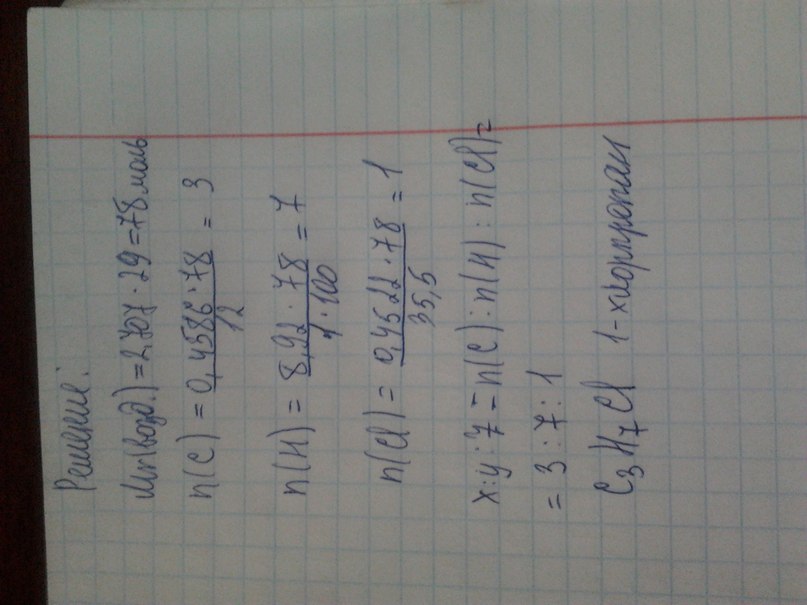 Решение:
Mr(возд.) = 2,707 · 29 = 78 моль
n(C) = 0,4586 · 78 / 12 = 3
n(H) = 8,92 · 78 / 1 · 100 = 7
n(Cl) = 0,4522 · 78 / 35,5 = 1
x : y : z = n(C) : n(H) : n(Cl) =
= 3 : 7 : 1
C₃H₇Cl 1-хлорпропан